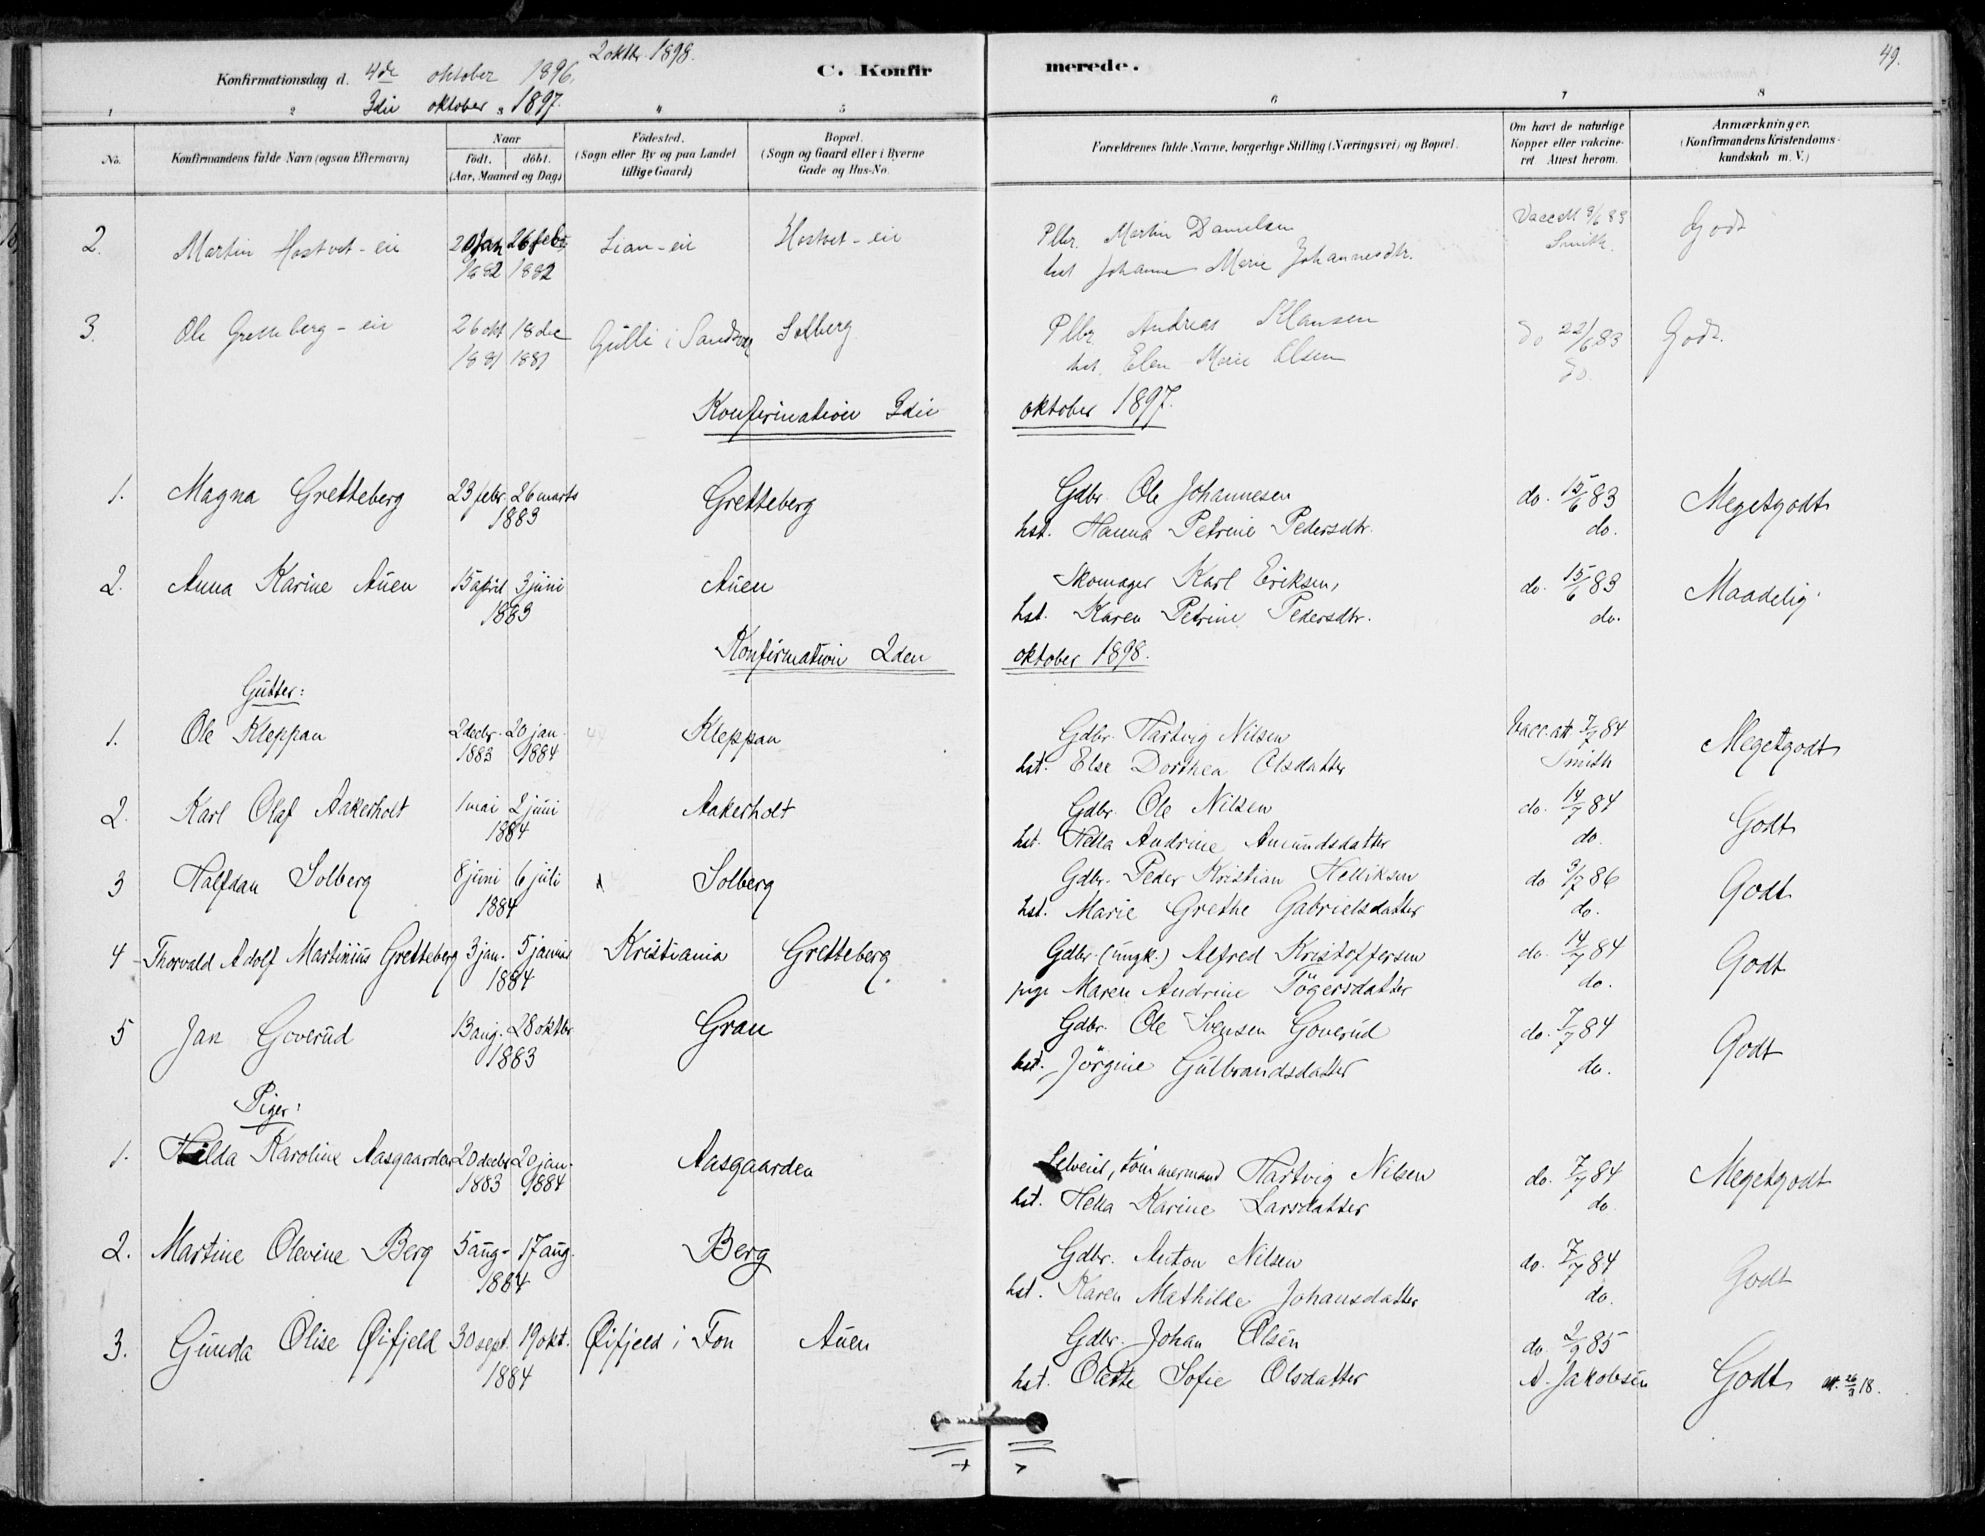 49.
2 oktb. 1898.
Konfirmationsdag d. 4de oktober 1896.
3die oktober 1897.
C. Konfirmerede.
1 2 3 4 5 6 7 8
No.
Konfirmandens fulde Navn (ogsaa Efternavn)
Naar
født. døbt.
(Aar, Maaned og Dag)
Fødested.
(Sogn eller By og paa Landet
tillige Gaard)
Bopæl.
(Sogn og Gaard eller i Byerne
Gade og Hus-No.
Forældrenes fulde Navne, borgerlige Stilling (Næringsvei) og Bopæl.
Om havt de naturlige
Kopper eller vakcine-
ret Attest herom.
Anmærkninger.
(Konfirmandens Kristendoms-
kundskab m. V.)
2. Martin Hostvet-eie 20 jan 26 feb Lian-eie Hostvet-eie Pllr. Martin Danielsen Vacc att 9/6 83 Godt
1882 1882 hst Johanne Marie Johannesdtr. Smith.
3. Ole Gretteberg-eie 26 okt 18 dec Gulli i Solberg Pllr. Andreas Klausen do 22/6 83 Godt.
1881 1881 hst. Elen Marie Olsen do.
Konfirmation 3die oktober 1897.
1. Magna Gretteberg 23 febr. 26 marts Gretteberg Gdbr. Ole Johannesen do. 15/6 83 Megetgodt
1883 hst. Hanna Petrine Pedersdtr. do.
2. Anna Karine Auen 15 april 3 juni Auen Skomager Karl Eriksen, do. 15/6 83 Maadelig.
1883 hst. Karen Petrine Pedersdtr. do.
Konfirmation 2den oktober 1898.
Gutter:
1. Ole Kleppan 2 decbr. 20 jan. Kleppan Gdbr. Hartvig Nilsen Vacc. att 7/7 84 Megetgodt
1883 1884 hst. Else Dorthea Olsdatter Smith
2. Karl Olaf Aakerholt 1 mai 2 juni Aakerholt Gdbr. Ole Nilsen do. 14/7 84 Godt
1884 hst. Hella Andrine Amundsdatter do.
3 Halfdan Solberg 8 juni 6 juli Solberg Gdbr. Peder Kristian Helliksen do 9/7 86 Godt
1884 hst. Marie Grethe Gabrielsdatter do.
4 Thorvald Adolf Martinius Gretteberg 3 jan. 5 januar Kristiania Gretteberg. Gdbr. (ungk.) Alfred Kristoffersen do. 14/7 84 Godt
1884 pige Maren Andrine Tögersdatter do.
5 Jan Goverud 13 aug. 28 oktbr Gran Gdbr. Ole Svensen Goverud do. 7/7 84 Godt
1883 hst. Jörgine Gulbrandsdatter do.
Piger:
1. Hilda Karoline Aasgaarden 20 decbr 20 jan. Aasgaarden Selveier, tömmermand Hartvig Nilsen do. 7/7 84 Megetgodt
1883 1884 hst. Hella Karine Larsdatter do.
2. Martine Olevine Berg 5 aug- 17 aug. Berg Gdbr. Anton Nilsen do. 7/7 84 Godt
1884 hst. Karen Mathilde Johansdatter do.
3. Gunda Olise Øifjeld 30 sept. 19 okt. Øifjeld i Fon Auen Gdbr. Johan Olsen do. 2/9 85
1884 hst. Olette Sofie Olsdatter A. Jakobsen Godt att. 26/3 18.